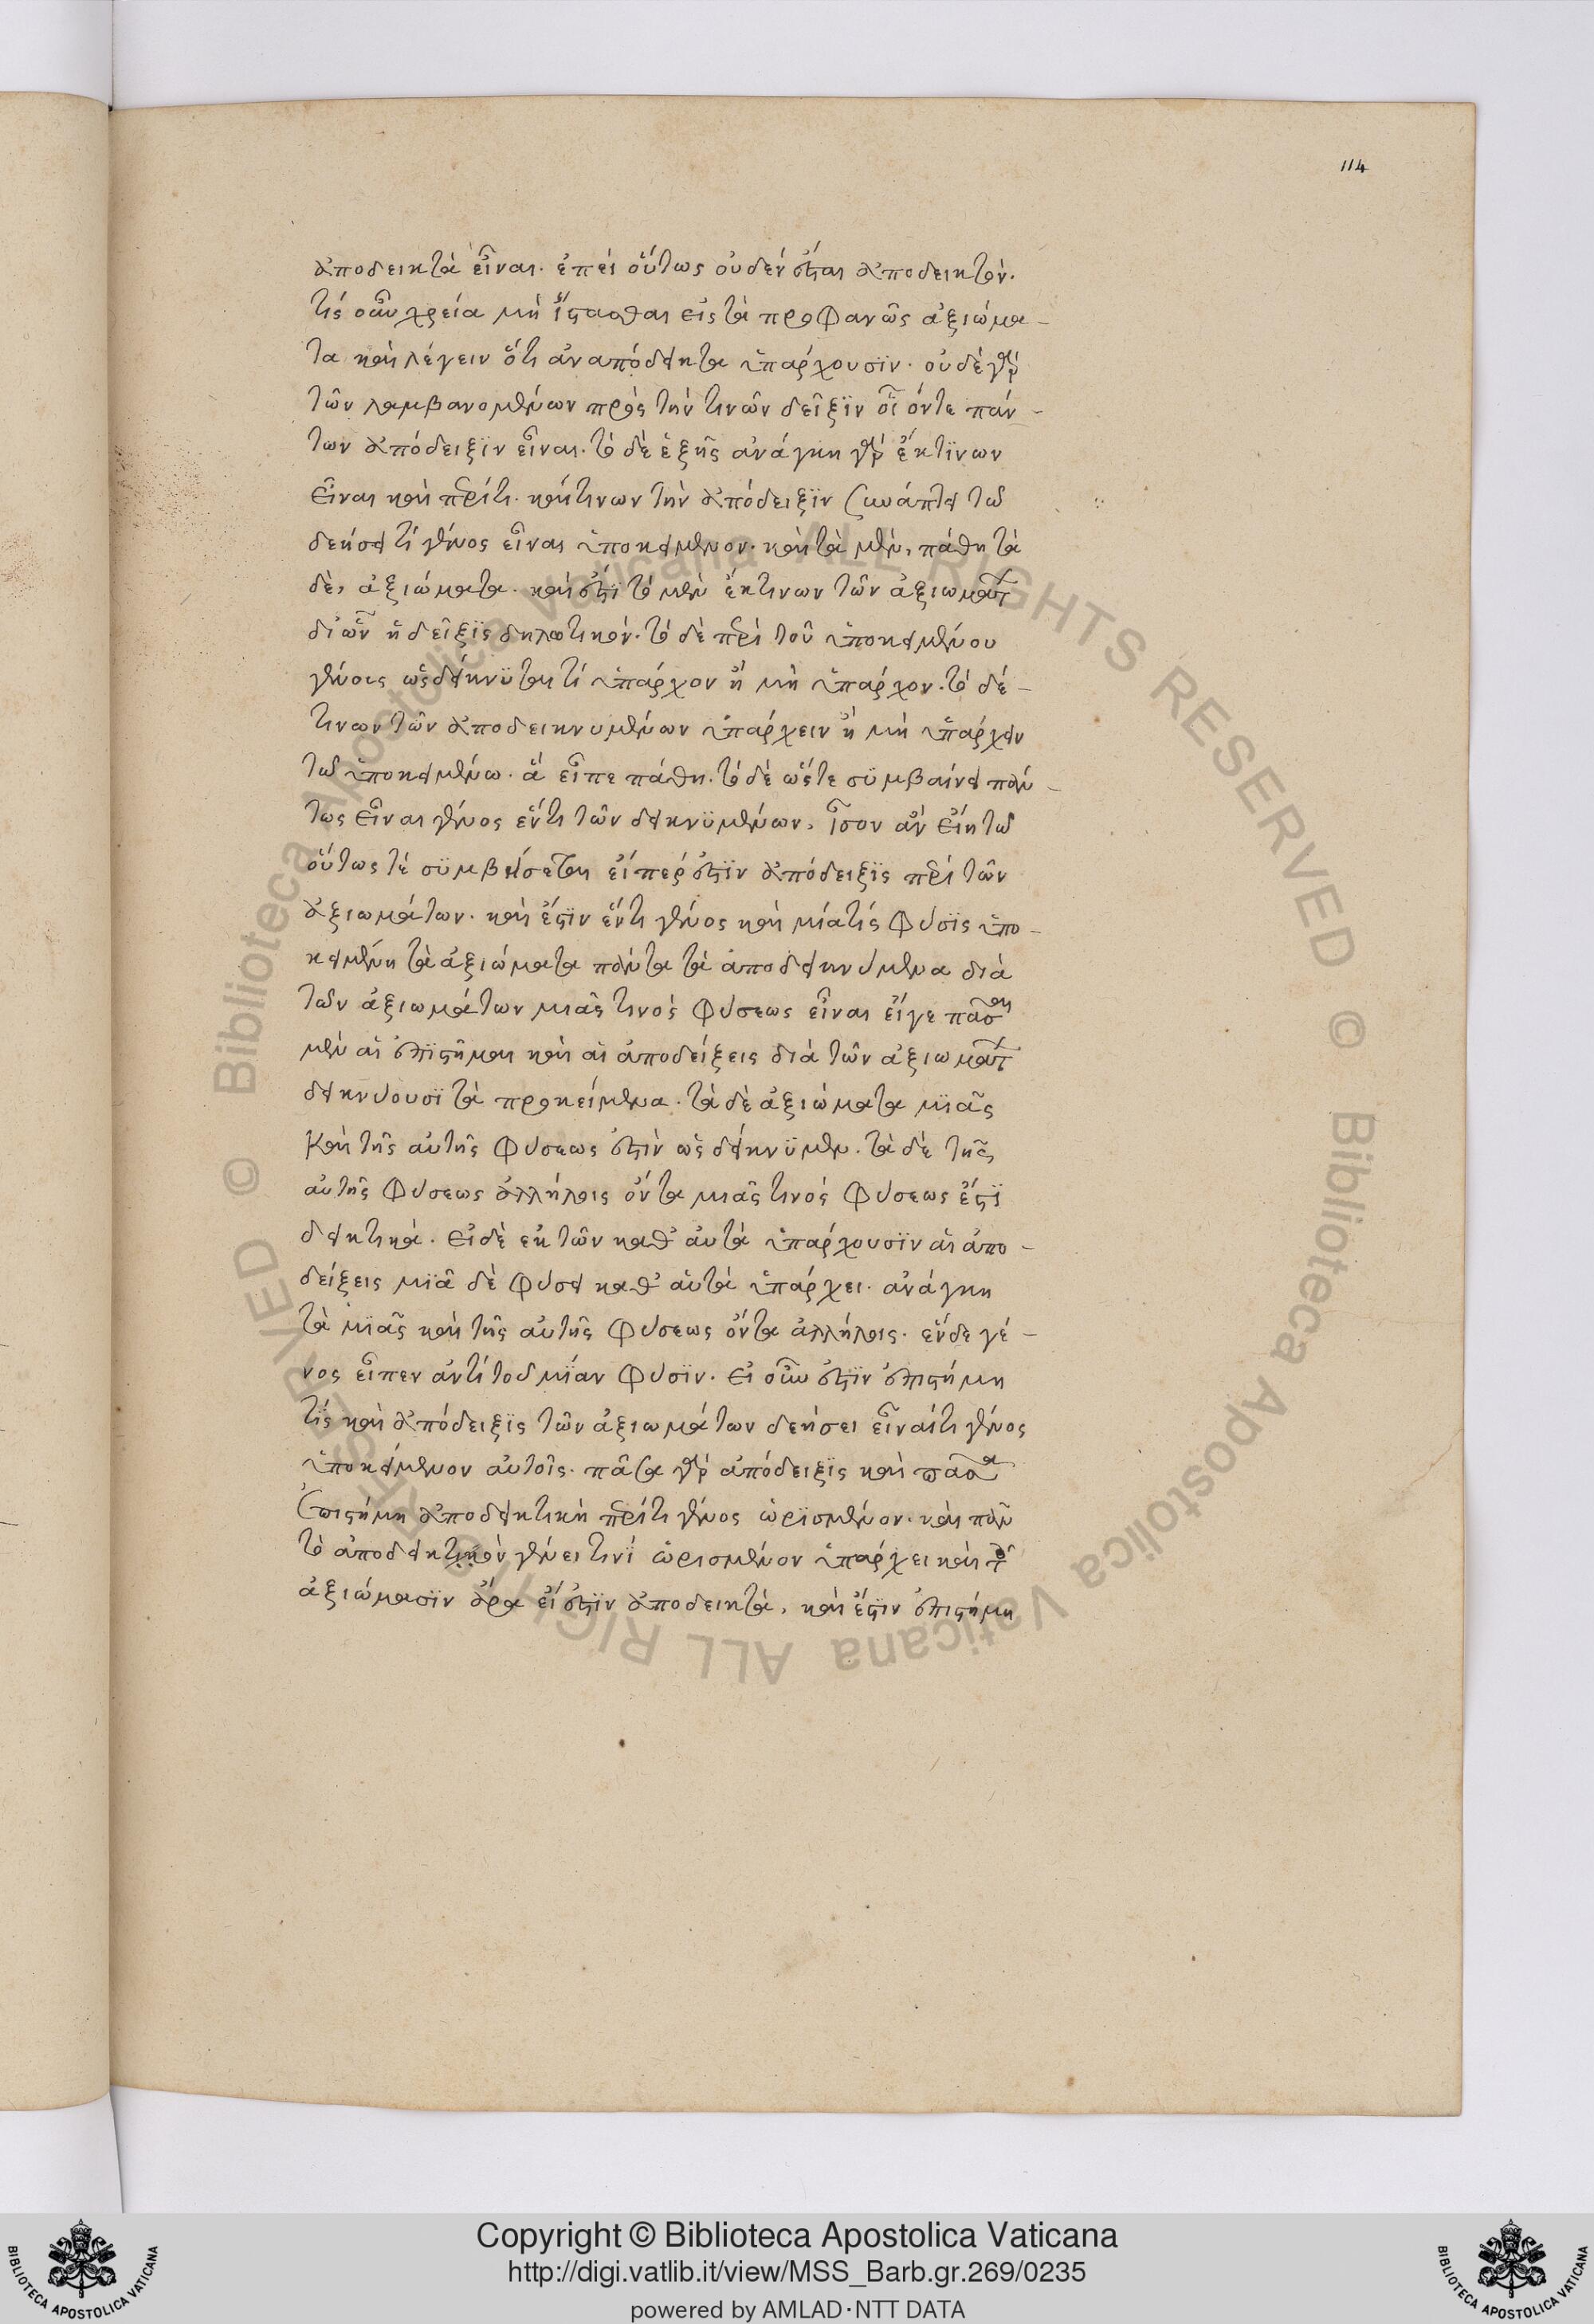 114
ἀποδεικτὰ εἶναι. ἐπεὶ οὕτως οὐδέν ἔσται ἀποδεικτόν.
τίς οὖν χρεία μὴ ἵστασθαι εἰς τὰ προφανῶς ἀξιώμα-
τα καὶ λέγειν ὅτι ἀναπόδεικτα ὑπάρχουσϊν. οὐδὲ γὰρ
τῶν λαμβανομένων πρὸς τὴν τινῶν δεῖξϊν οἷόντε πάν-
των ἀπόδειξϊν εἶναι. τὸ δὲ ἑξῆς ἀνάγκη γὰρ ἔκ τϊνων
εἶναι καὶ περίτι. καί τινων τὴν ἀπόδειξϊν συνάπτει τῶ
δεήσει τί γένος εἶναι ὑποκείμενον. καὶ τὰ μὲν, πάθη τὰ
δὲ, ἀξιώματα. καὶ ἔστϊ τὸ μὲν ἔκ τινων τῶν ἀξιωμάτ
δι ὧν ἡ δεῖξϊς δηλωτικόν. τὸ δὲ περὶ τοῦ ὑποκειμένου
γένους ὡς δείκνϋται τί ὑπάρχον ἢ μὴ ὑπάρχον. τὸ δέ-
τινων τῶν ἀποδεικνυμένων ὑπάρχειν ἢ μὴ ὑπάρχειν
τῶ ὑποκειμένω. ἃ εἶπε πάθη. τὸ δὲ ὥστε σϋμβαίνει πάν-
τως εἶναι γένος ἕν τι τῶν δεικνϋμένων, ἶσον ἂν εἴη τῶ
οὕτως τὲ σϋμβήσεται εἴπερ ἐστϊν ἀπόδειξϊς περὶ τῶν
ἀξιωμάτων. καὶ ἔστϊν ἕν τι γένος καὶ μία τίς φύσϊς ὑπο-
κειμένη τὰ ἀξιώματα πάντα τὰ ἀποδεικνύμενα διὰ
τῶν ἀξιωμάτων μιᾶς τινὸς φύσεως εἶναι εἴγε πᾶσαι
μὲν αἱ ἐπϊστῆμαι καὶ αἱ ἀποδείξεις διὰ τῶν ἀξιωμάτ
δεικνύουσϊ τὰ προκείμενα. τὰ δὲ ἀξιώματα μϊᾶς
καὶ τῆς αὐτῆς φύσεως ἐστὶν ὡς δείκνϋμεν. τὰ δὲ τῆς
αὐτῆς φύσεως ἀλλήλοις ὄντα μιᾶς τινὸς φύσεως ἔστϊ
δεικτικά. εἰ δὲ ἐκ τῶν καθ αὑτὰ ὑπάρχουσϊν αἱ ἀπο-
δείξεις μϊᾶ δὲ φύσει καθ αὑτὰ ὑπάρχει. ἀνάγκη
τὰ μϊᾶς καὶ τῆς αὐτῆς φύσεως ὄντα ἀλλήλοις. ἓν δε γέ-
νος εἶπεν ἀντὶ τοῦ μϊάν φύσϊν. εἰ οὖν ἐστϊν ἐπιστήμη
τὶς καὶ ἀπόδειξϊς τῶν ἀξιωμάτων δεήσει εἶναί τι γένος
ὑποκείμενον αὐτοῖς. πᾶσα γὰρ ἀπόδειξϊς καὶ πᾶσα
ἐπιστήμη ἀποδεικτικὴ περίτι γένος ὡρϊσμένον. καὶ πᾶν
τὸ ἀποδεικτικὸν γένει τινῒ ὡρισμένον ὑπάρχει καὶ τ
ἀξιώμασϊν ἄρα εἴ ἐστϊν ἀποδεικτὰ, καὶ ἔστϊν ἐπιστήμη
Copyright © Biblioteca Apostolica Vaticana
http://digi.vatlib.it/view/MSS_Barb.gr.269/0235
powered by AMLAD·NTT DATA